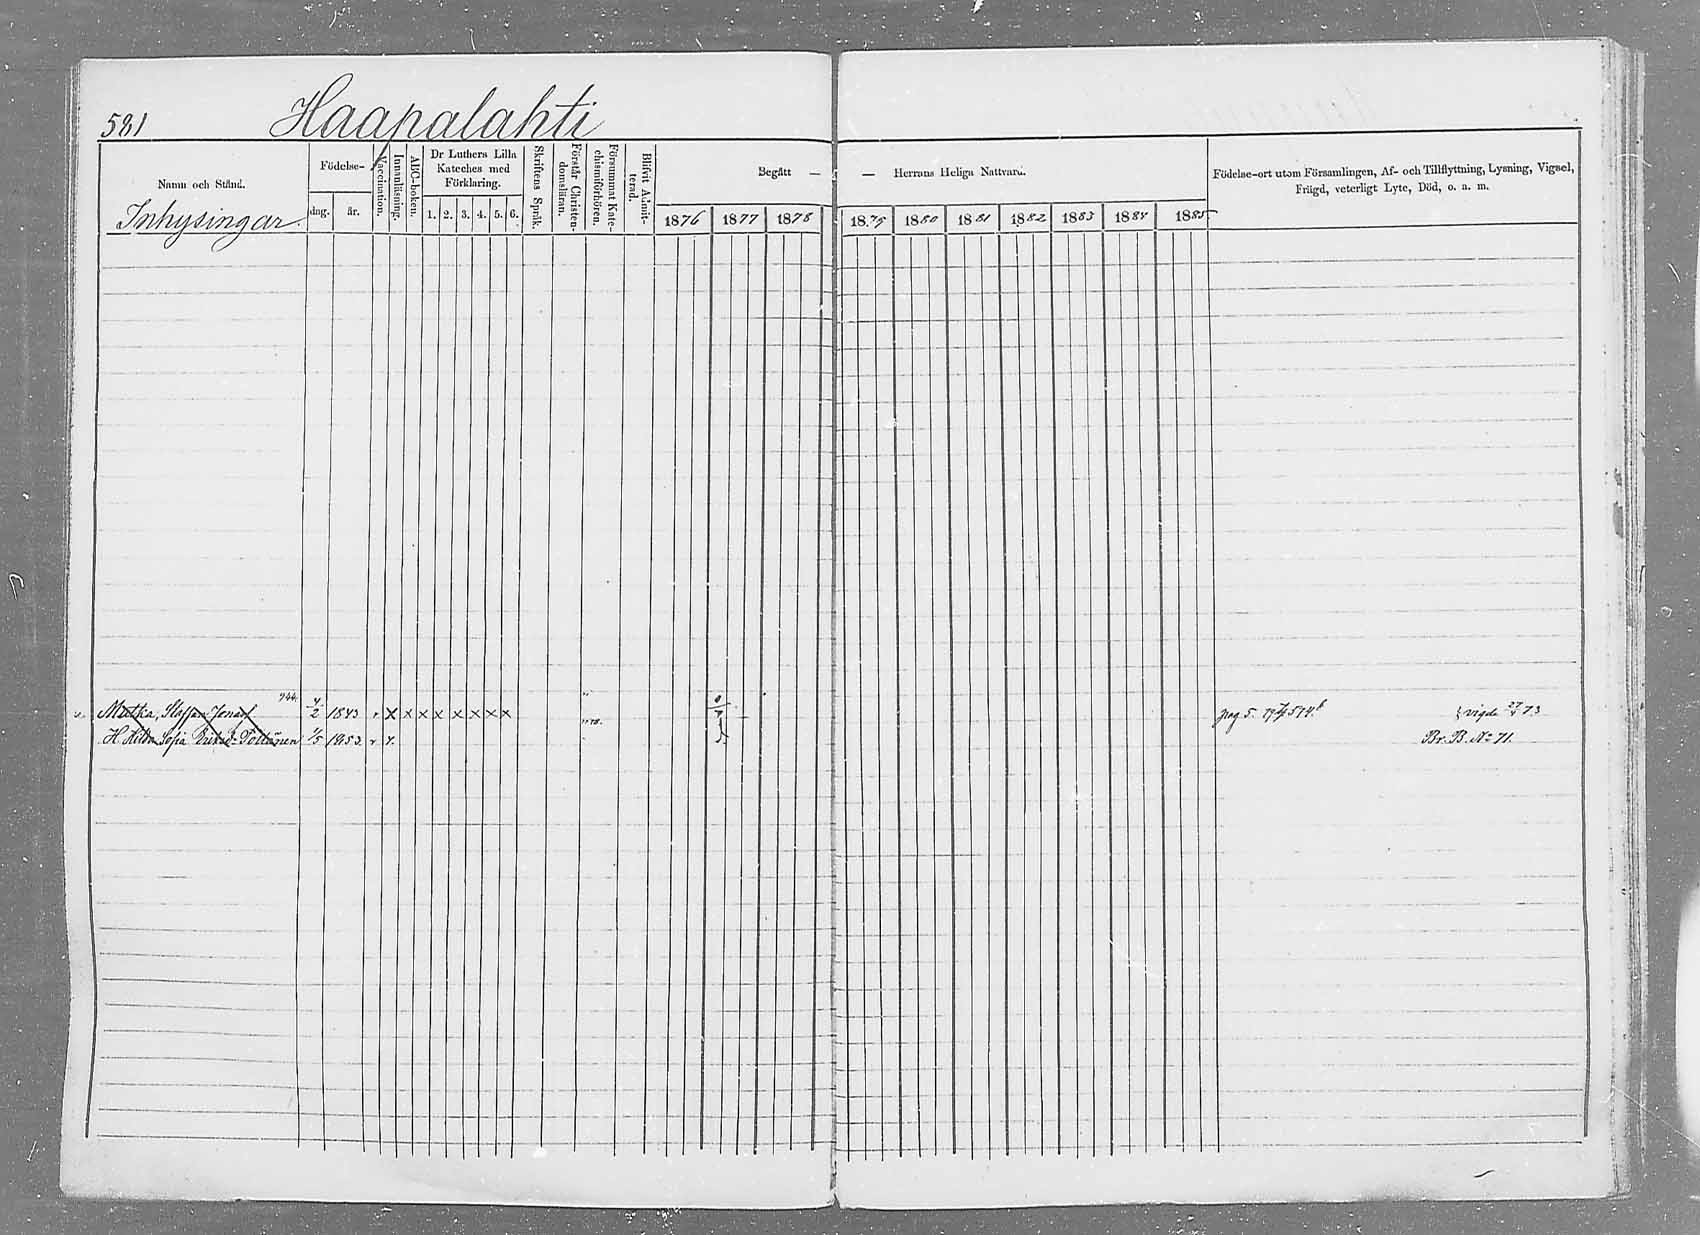 581 Haapalahti
Namn och Stånd.
Inhysingar.
Födelse-
dag.
år.
Vaccination.
Innanläsning.
ABC-boken.
Dr Luthers Lilla
Kateches med
Förklaring.
1. 2. 3. 4. 5. 6.
Skriftens Språk.
Förstår Christen-
domsläran.
Försummat Kate-
chismiförhören.
Blifvit Admit-
terad.
Begått —
1876 1877 1878
— Herrans Heliga Nattvard.
1879 1880 1881 1882 1883 1884 1885
Födelse-ort utom Församlingen, Af- och Tillflyttning, Lysning, Vigsel,
Frägd, veterligt Lyte, Död, o. a. m.
944.
Mutka, Staffan Jonass. 4/2 1843 v x x x x x x x x pag 5. vigde 73
H. Hilda Sofia 1/5 1853. v Br. B. No 71.